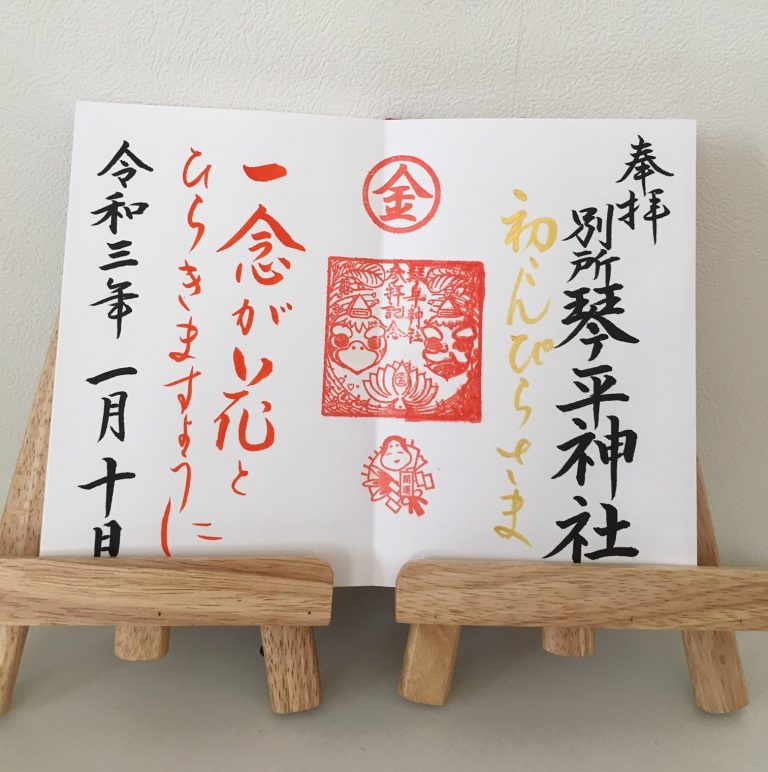 奉拝
別所琴平神社
初こんぴらさま
金
琴平神社
参拝記念
開運
一念がい花と
ひらきますように
令和三年 一月 十日